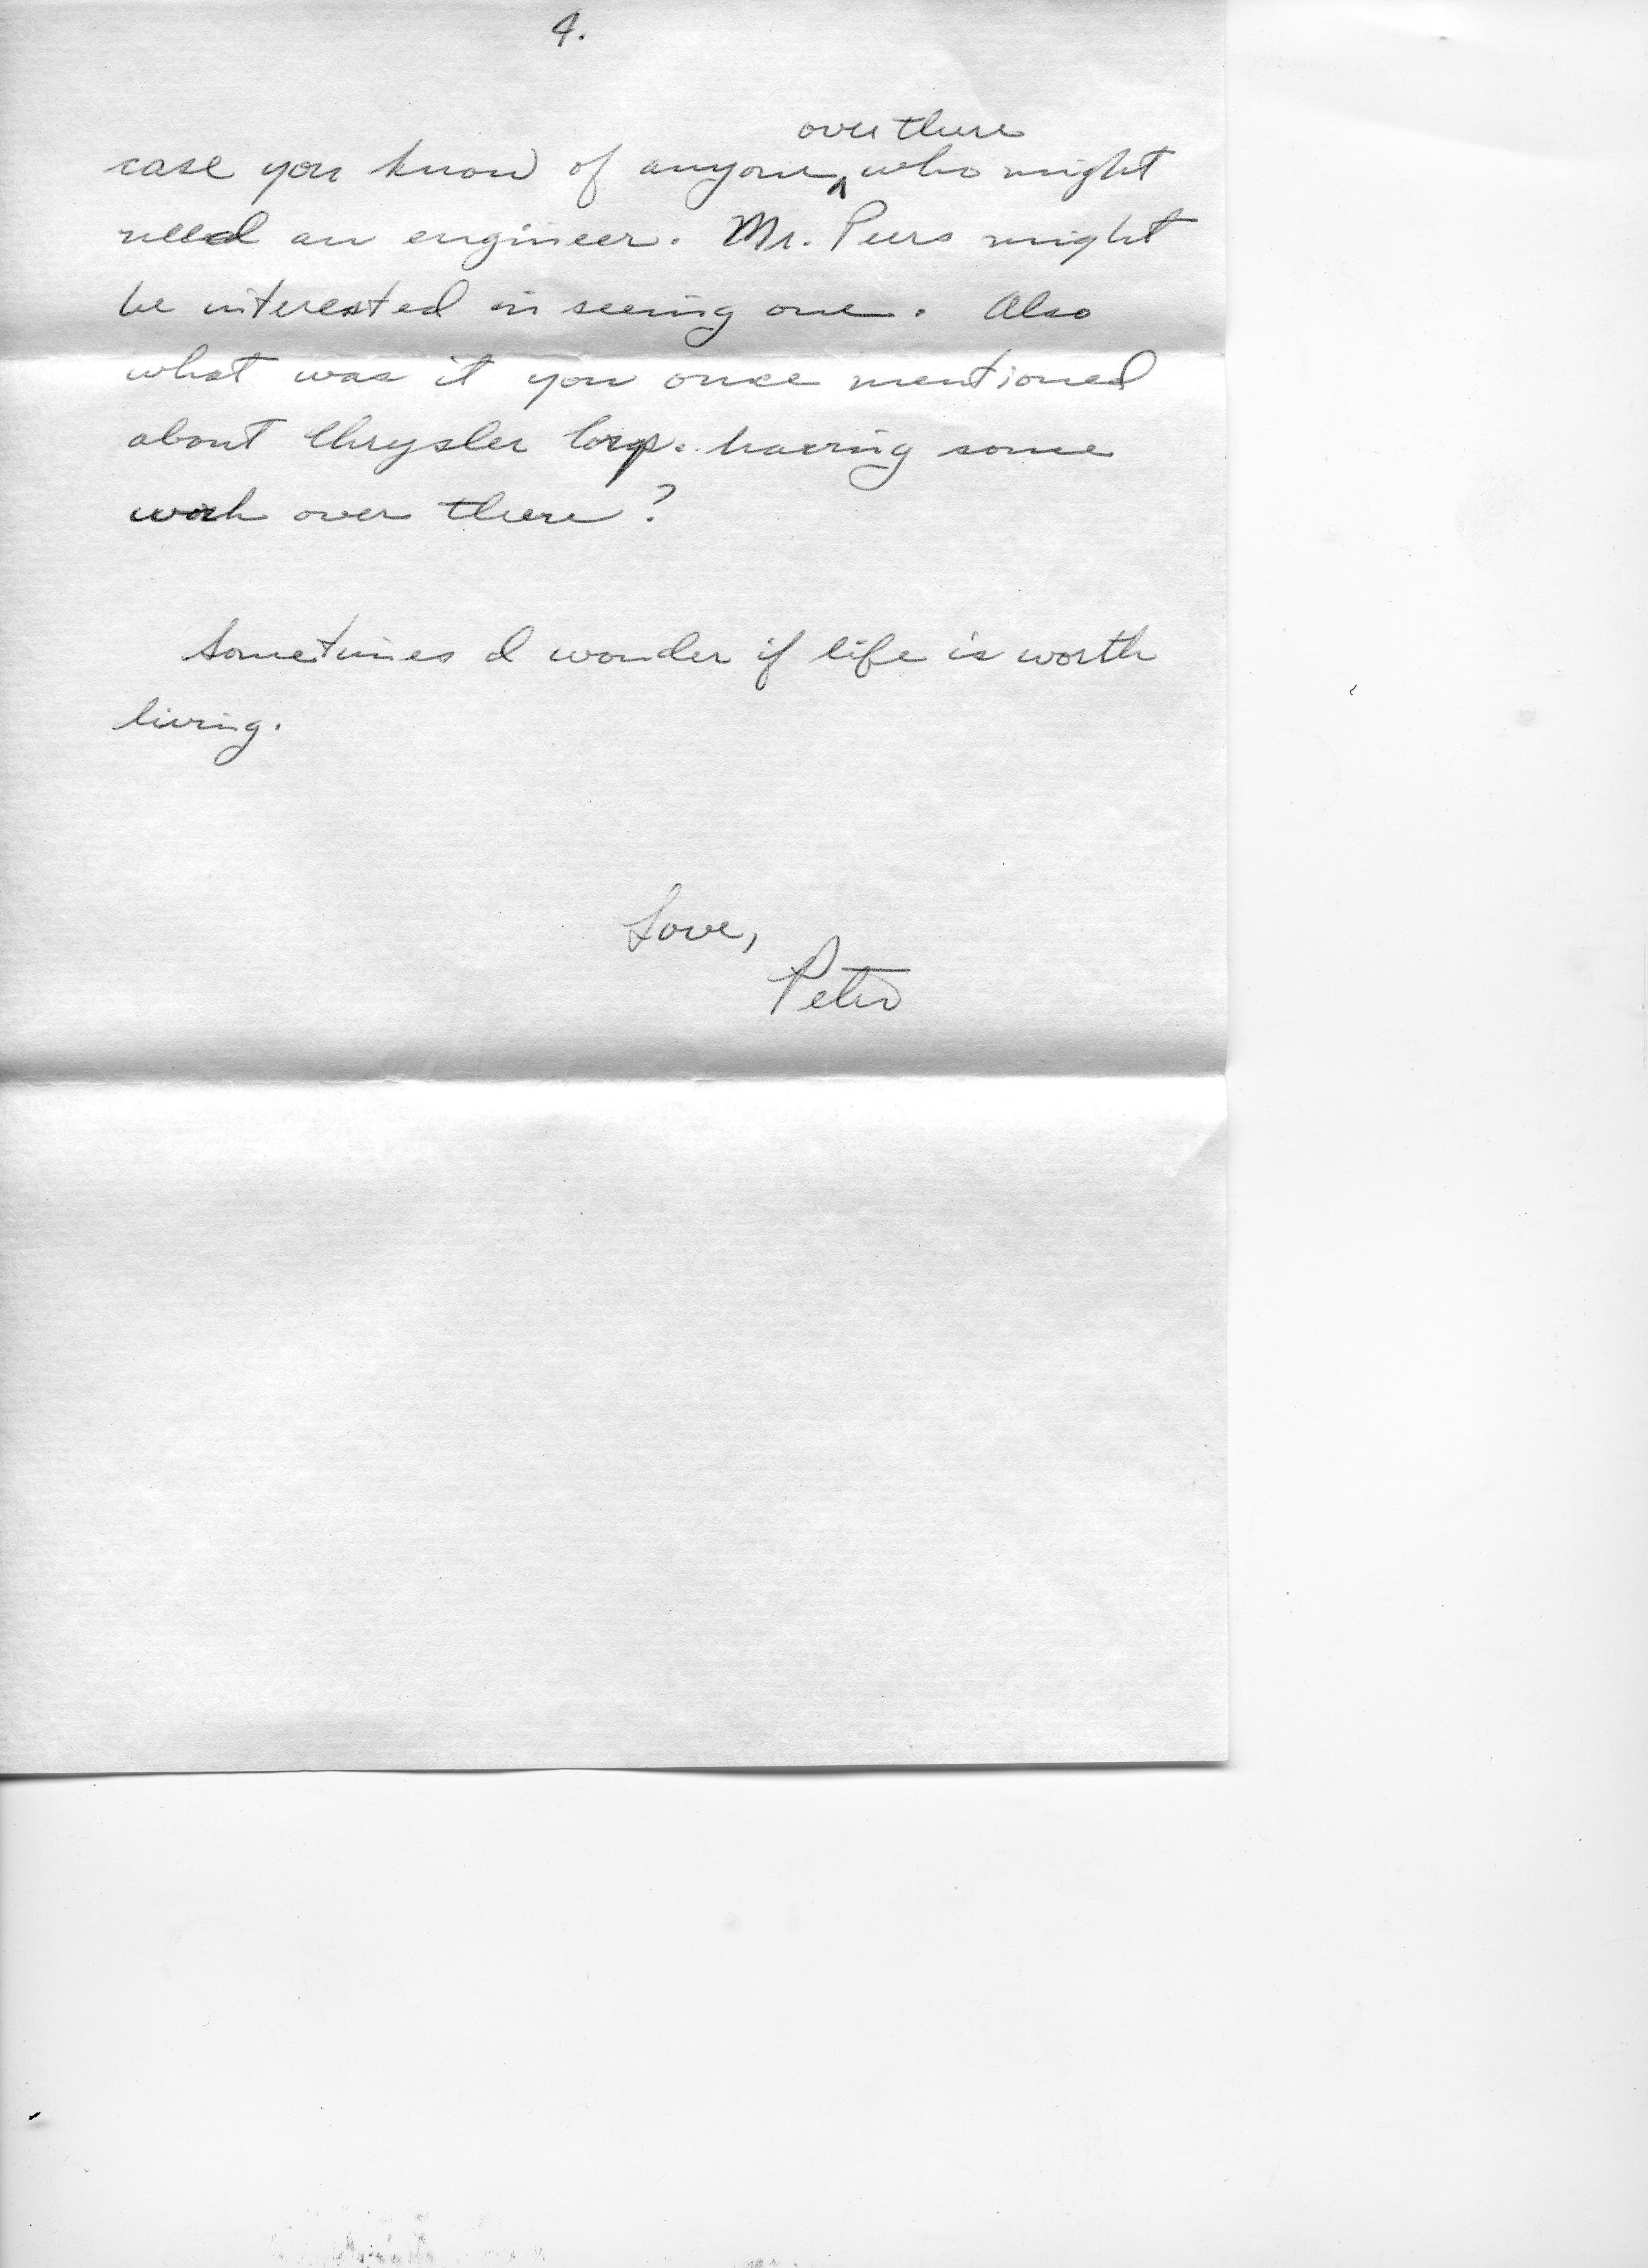 4.
over there
case you know of anyone ^ who might
need an engineer. Mr. Peers might
be interested in seeing one. Also
what was it you once mentioned
about Chrysler Corp. having some
work over there?
Sometimes I wonder if life is worth
living.
Love,
Peter